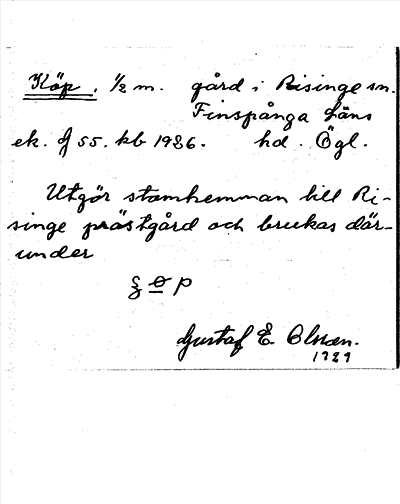 Köp. 1/2 m. gård i Risinge sn.
Finspånga läns
ek. bl 55. kb 1926. hd. Ögl.
Utgör stamhemman till Ri-
singe prästgård och brukas där-
under
ʒ ɵ p
Gustaf E. Olsson.
1929